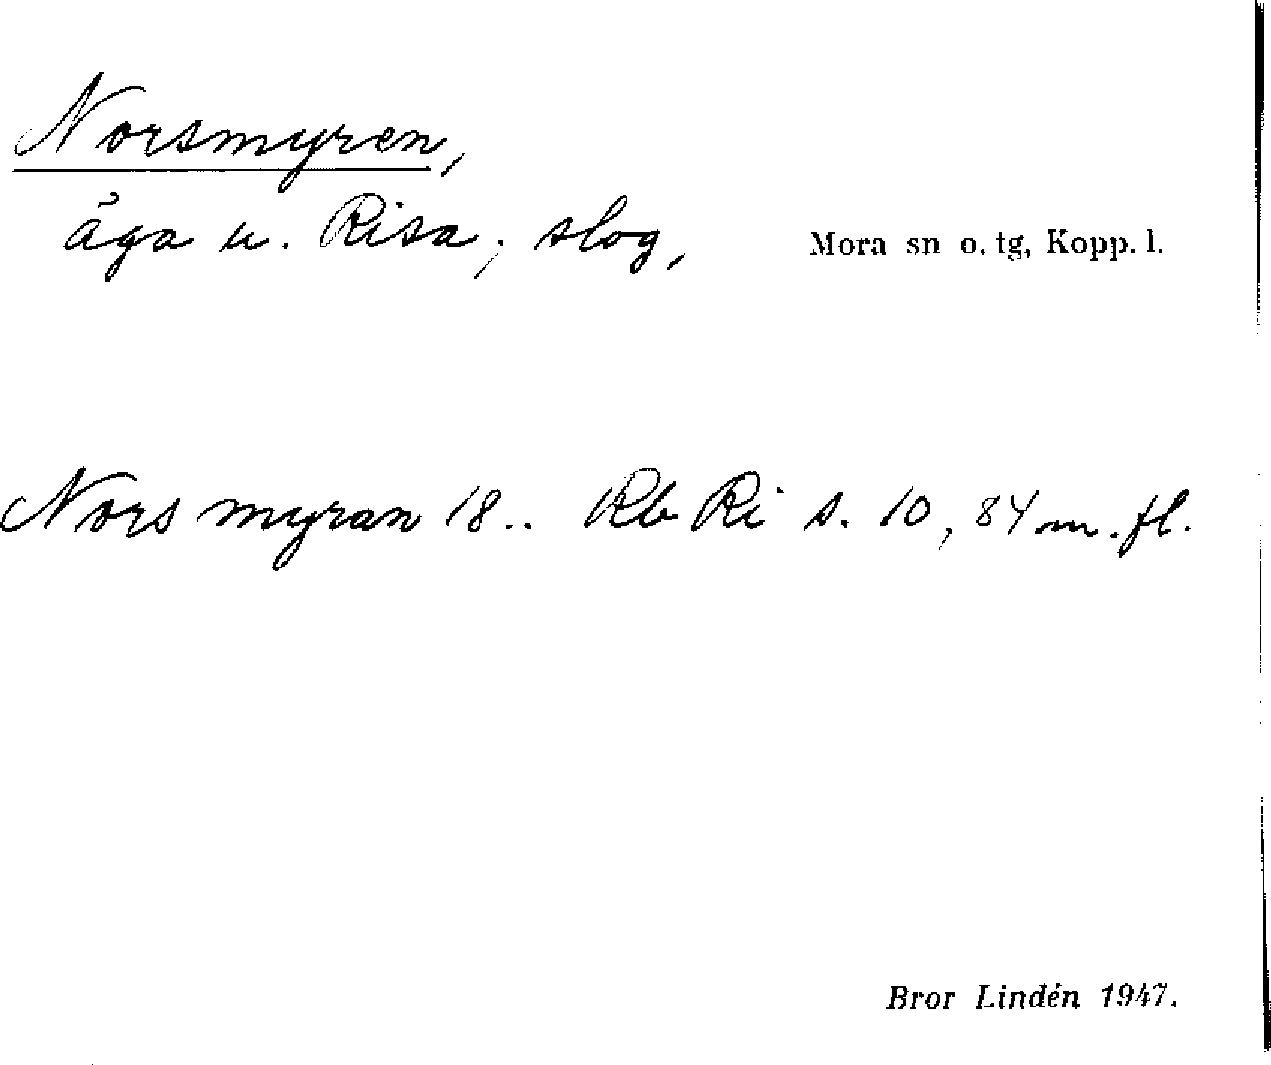 Norsmyren,
äga u. Risa; slog, Mora sn o. tg, Kopp. l.
Nors myran 18.. Rb Ri s. 10, 84 m. fl.
Bror Lindén 1947.